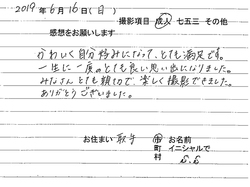 2019年6月16日(日)
撮影項目 成人 七五三 その他
感想をお願いします
かわいく自分好みになって、とても満足です。
一生に一度のとても良い思い出になりました。
みなさんとても親切で、楽しく撮影できました。
ありがとうございました。
お住まい 取手 市 町 村
お名前
イニシャルで
S.S